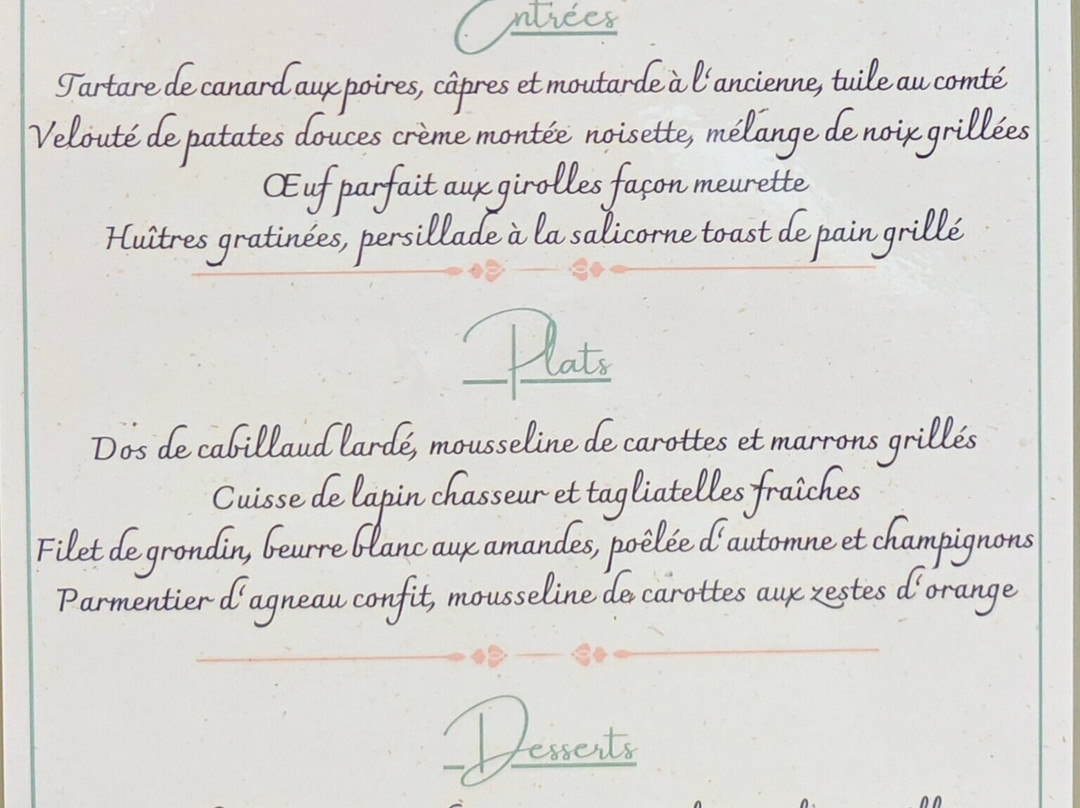 Entrées
Tartare de canard aux poires, câpres et moutarde à l'ancienne, tuile au comté
Velouté de patates douces crème montée noisette, mélange de noix grillées
Œuf parfait aux girolles façon meurette
Huîtres gratinées, persillade à la salicorne toast de pain grillé
Plats
Dos de cabillaud lardé, mousseline de carottes et marrons grillés
Cuisse de lapin chasseur et tagliatelles fraîches
Filet de grondin, beurre blanc aux amandes, poêlée d'automne et champignons
Parmentier d'agneau confit, mousseline de carottes aux zestes d'orange
Desserts